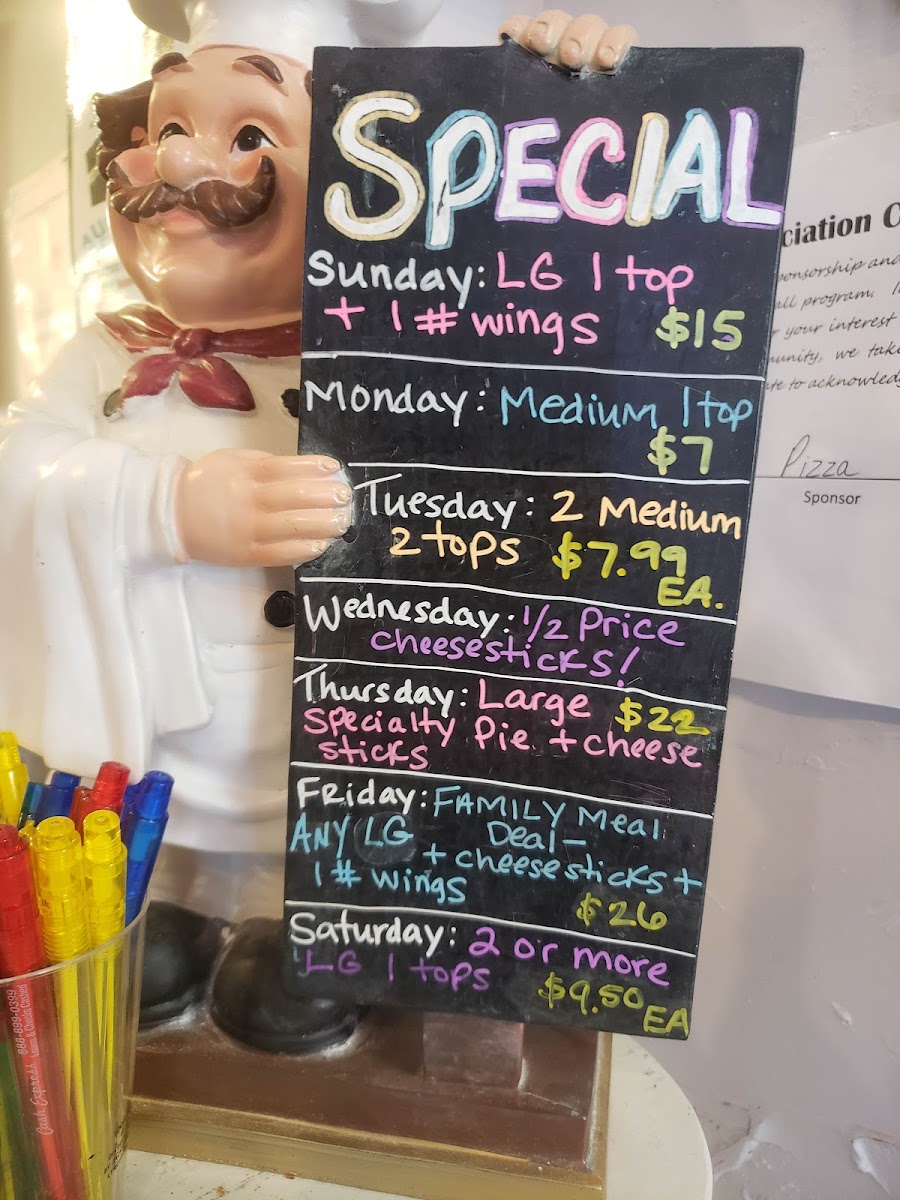 SPECIAL
Sunday: LG 1 top
+ 1 # wings $15
Monday: Medium 1 top
$7
Tuesday: 2 Medium
2 tops $7.99
EA.
Wednesday: 1/2 Price
Cheesesticks!
Thursday: Large $22
Specialty Pie + cheese
sticks
Friday: FAMILY Meal
Deal –
ANY LG
+ cheesesticks +
1 # wings
$26
Saturday: 2 or more
LG 1 tops $9.50
EA
ciation
ponsorship and
all program.
your interest
munity, we take
to acknowled
Pizza
Sponsor
AU
888-899-0399
Loans & Checks Cashed
Cash Express